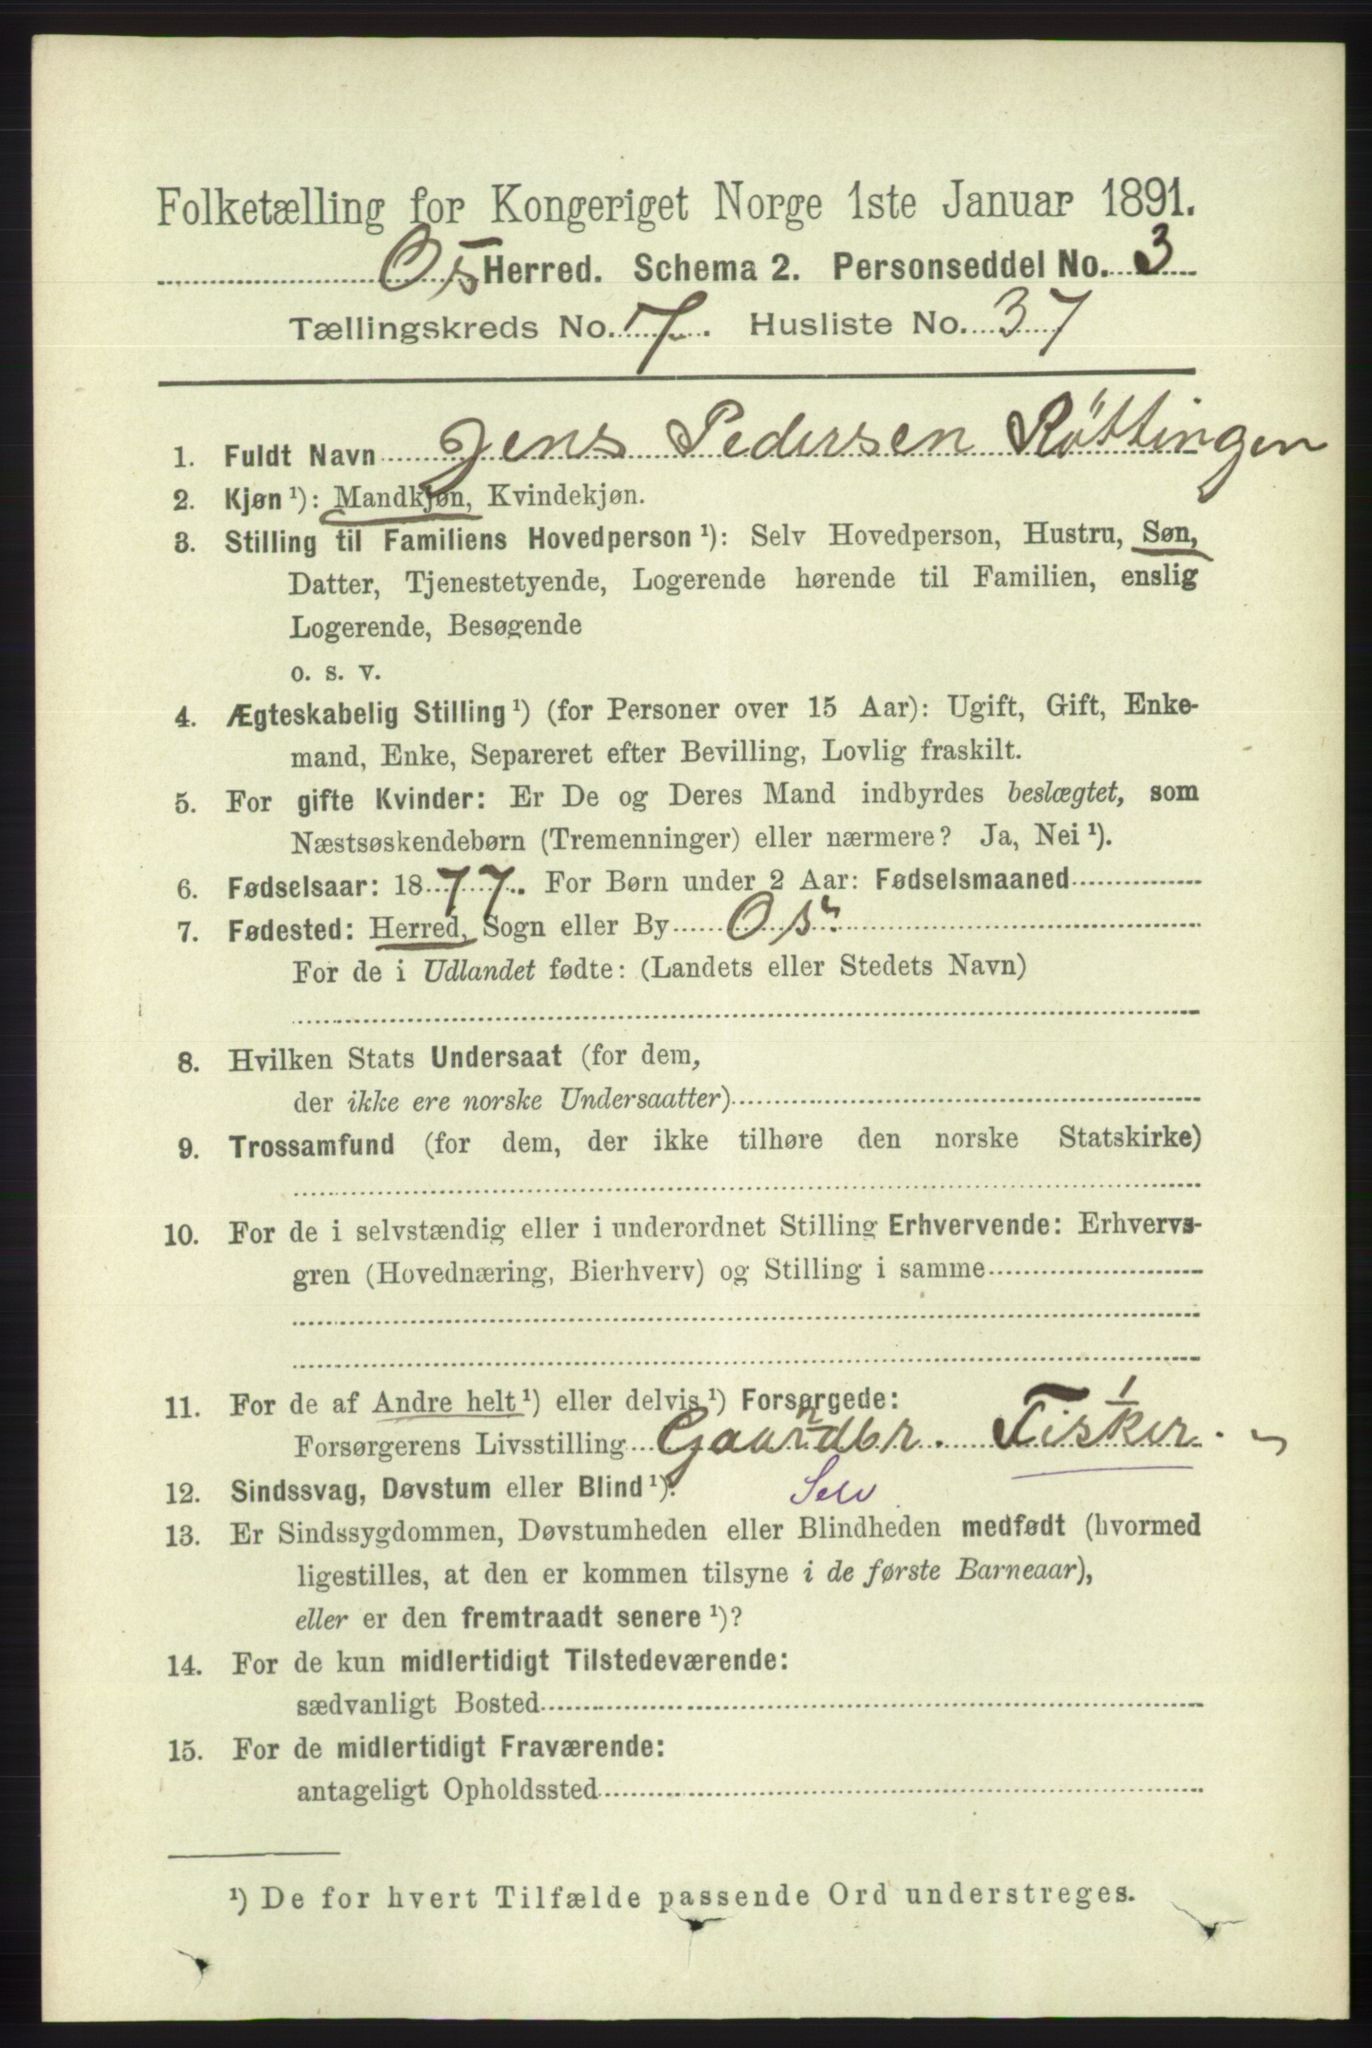 Folketælling for Kongeriget Norge 1ste Januar 1891.
Os Herred. Schema 2. Personseddel No. 3
Tællingskreds No. 7. Husliste No. 37
1. Fuldt Navn Jens Pedersen Röttingen
2. Kjøn ¹): Mandkjøn, Kvindekjøn.
3. Stilling til Familiens Hovedperson ¹): Selv Hovedperson, Hustru, Søn,
Datter, Tjenestetyende, Logerende hørende til Familien, enslig
Logerende, Besøgende
o. s. v.
4. Ægteskabelig Stilling ¹) (for Personer over 15 Aar): Ugift, Gift, Enke-
mand, Enke, Separeret efter Bevilling, Lovlig fraskilt.
5. For gifte Kvinder: Er De og Deres Mand indbyrdes beslægtet, som
Næstsøskendebørn (Tremenninger) eller nærmere? Ja, Nei ¹).
6. Fødselsaar: 1877. For Børn under 2 Aar: Fødselsmaaned
7. Fødested: Herred, Sogn eller By Os
For de i Udlandet fødte: (Landets eller Stedets Navn)
8. Hvilken Stats Undersaat (for dem,
der ikke ere norske Undersaatter)
9. Trossamfund (for dem, der ikke tilhøre den norske Statskirke)
10. For de i selvstændig eller i underordnet Stilling Erhvervende: Erhvervs-
gren (Hovednæring, Bierhverv) og Stilling i samme
11. For de af Andre helt ¹) eller delvis ¹) Forsørgede:
Forsørgerens Livsstilling Gaardbr. Fisker.
12. Sindssvag, Døvstum eller Blind ¹). Selv
13. Er Sindssygdommen, Døvstumheden eller Blindheden medfødt (hvormed
ligestilles, at den er kommen tilsyne i de første Barneaar),
eller er den fremtraadt senere ¹)?
14. For de kun midlertidigt Tilstedeværende:
sædvanligt Bosted
15. For de midlertidigt Fraværende:
antageligt Opholdssted
¹) De for hvert Tilfælde passende Ord understreges.